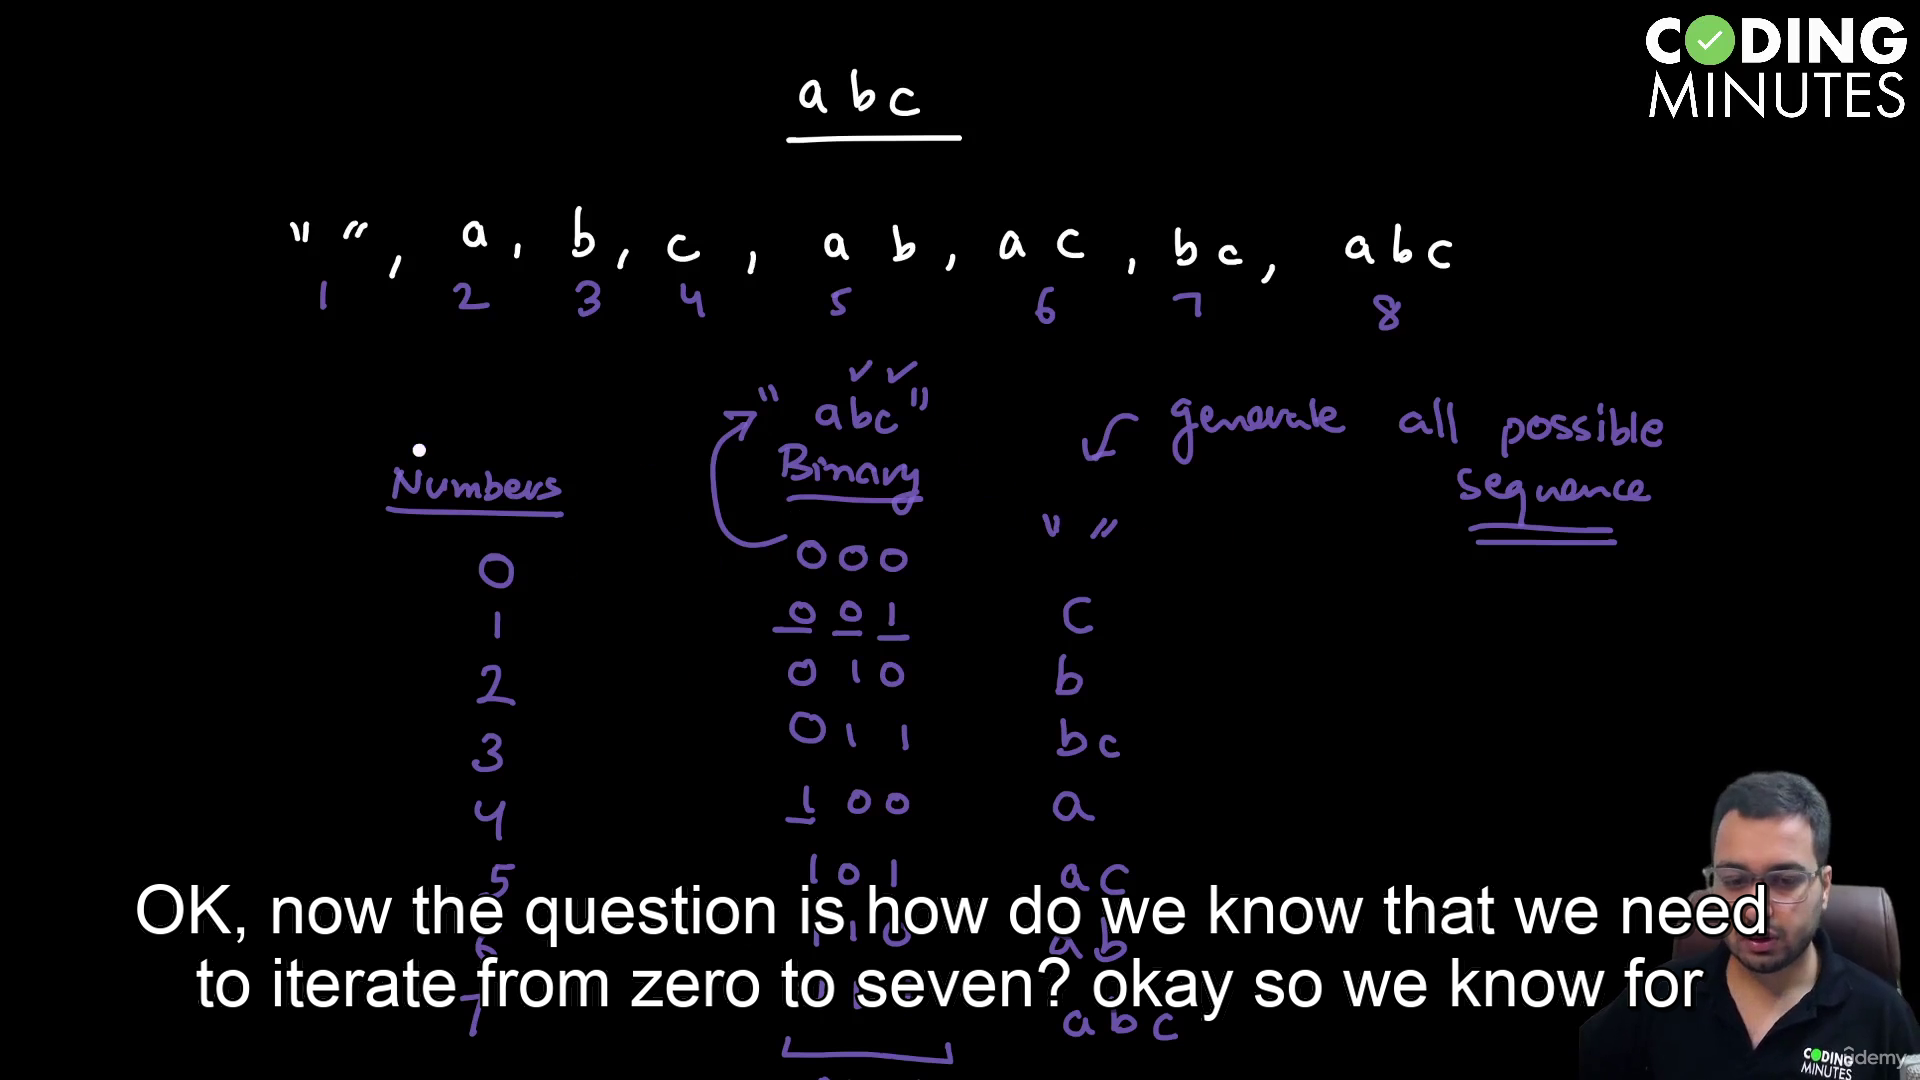 CODING
MINUTES
abc
" ", a, b, c, ab, ac, bc, abc
1 2 3 4 5 6 7 8
"abc"
generate all possible
sequence
Numbers Binary
0 000 " "
1 001 c
2 010 b
3 011 bc
4 100 a
5 101 ac
6 110 ab
7 abc
OK, now the question is how do we know that we need
to iterate from zero to seven? okay so we know for
CODING
MINUTES
ûdemy